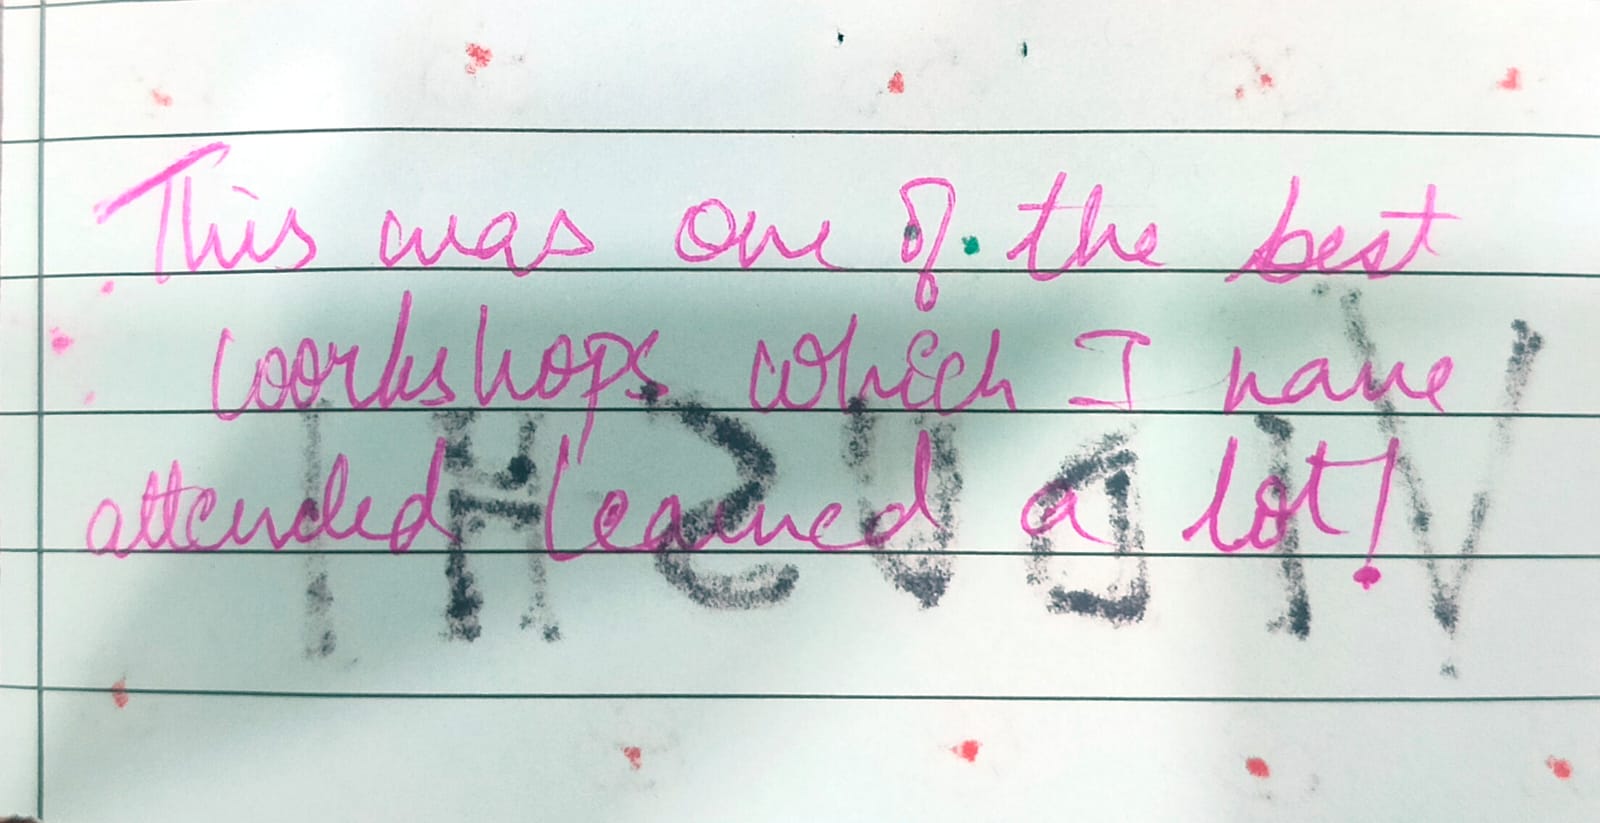 This was one of the best
workshops which I have
attended learned a lot!
VIDUSHI